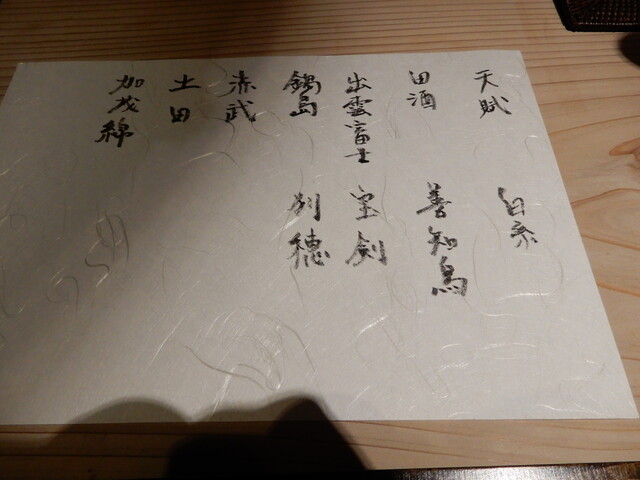 天賦
田酒
出雲富士
鍋島
赤武
土田
加茂綿
白糸
善知鳥
宝剣
刈穂